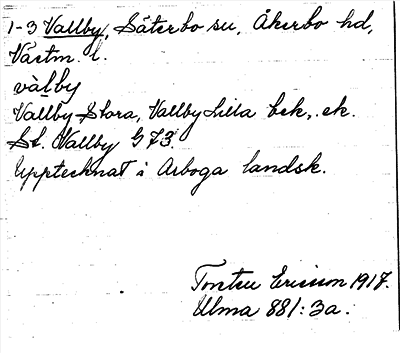 1-3 Vallby, Säterbo sn, Åkerbo hd,
Västm. l.
vàlby
Vallby Stora, Vallby Lilla bek,. ek.
St. Vallby G 73.
Upptecknat i Arboga landsk.
Torsten Ericsson 1917.
Ulma 881:3a.